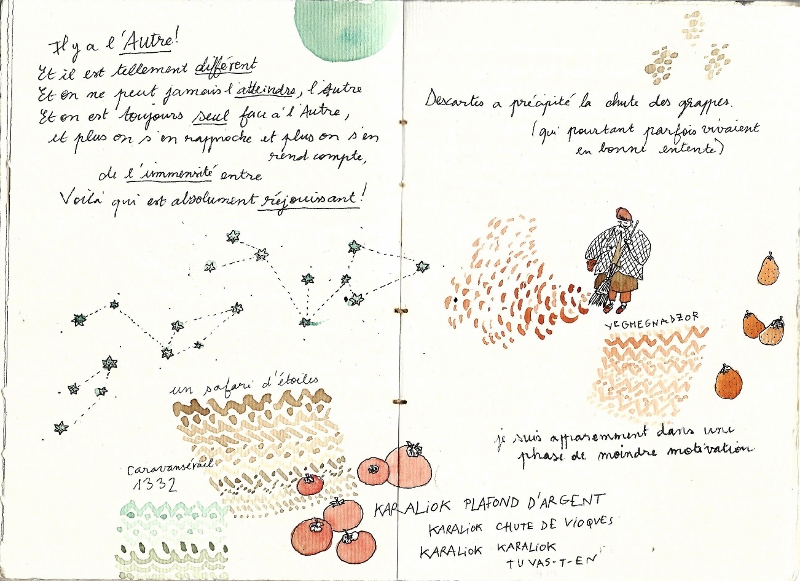 Il y a l'Autre!
Et il est tellement différent
Et on ne peut jamais l'atteindre, l'Autre
Et on est toujours seul face à l'Autre,
et plus on s'en rapproche et plus on s'en
rend compte,
de l'immensité entre
Voilà qui est absolument réjouissant!
un safari d'étoiles
Caravansérail
1332
Descartes a précipité la chute des grappes.
(qui pourtant parfois vivaient
en bonne entente)
YEGHEGNADZOR
je suis apparemment dans une
phase de moindre motivation
KARALIOK PLAFOND D'ARGENT
KARALIOK CHUTE DE VIOQUES
KARALIOK KARALIOK
TU VAS-T-EN